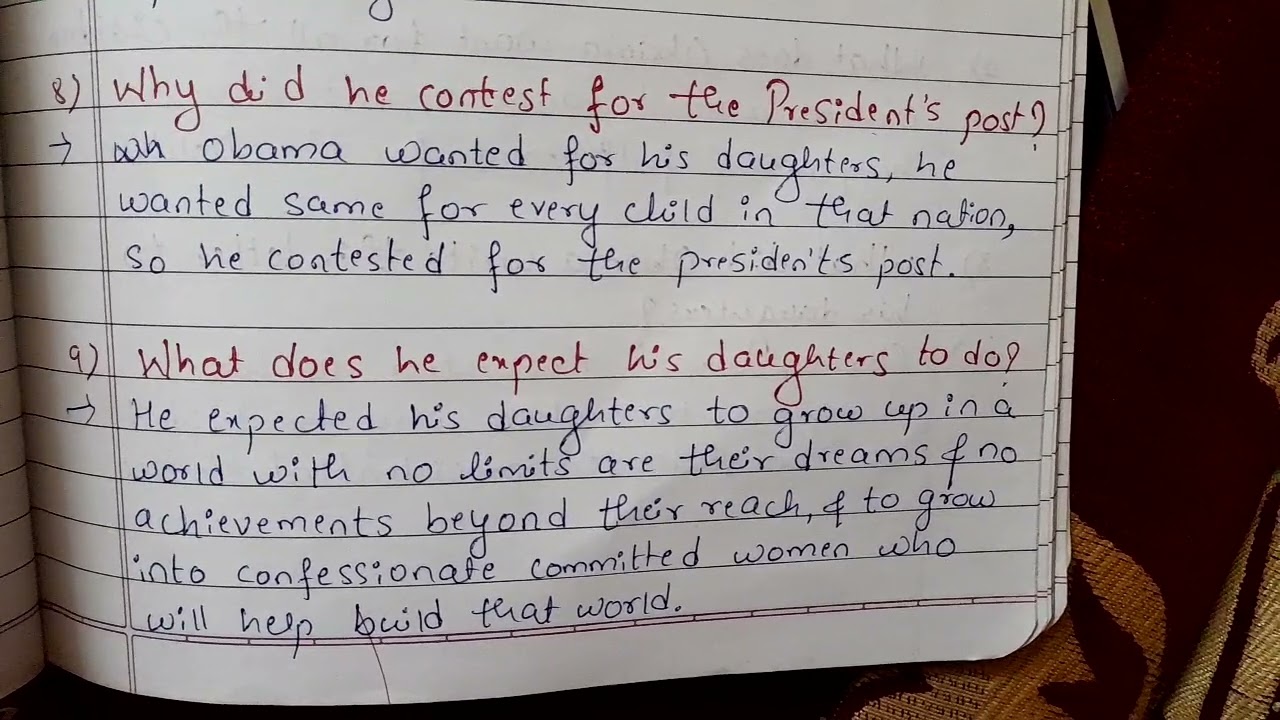 8) Why did he contest for the President's post?
→ Obama wanted for his daughters, he
wanted same for every child in that nation,
so he contested for the presiden'ts post.
9) What does he expect his daughters to do?
→ He expected his daughters to grow up in a
world with no limits are their dreams & no
achievements beyond their reach, & to grow
into confessionate committed women who
will help build that world.